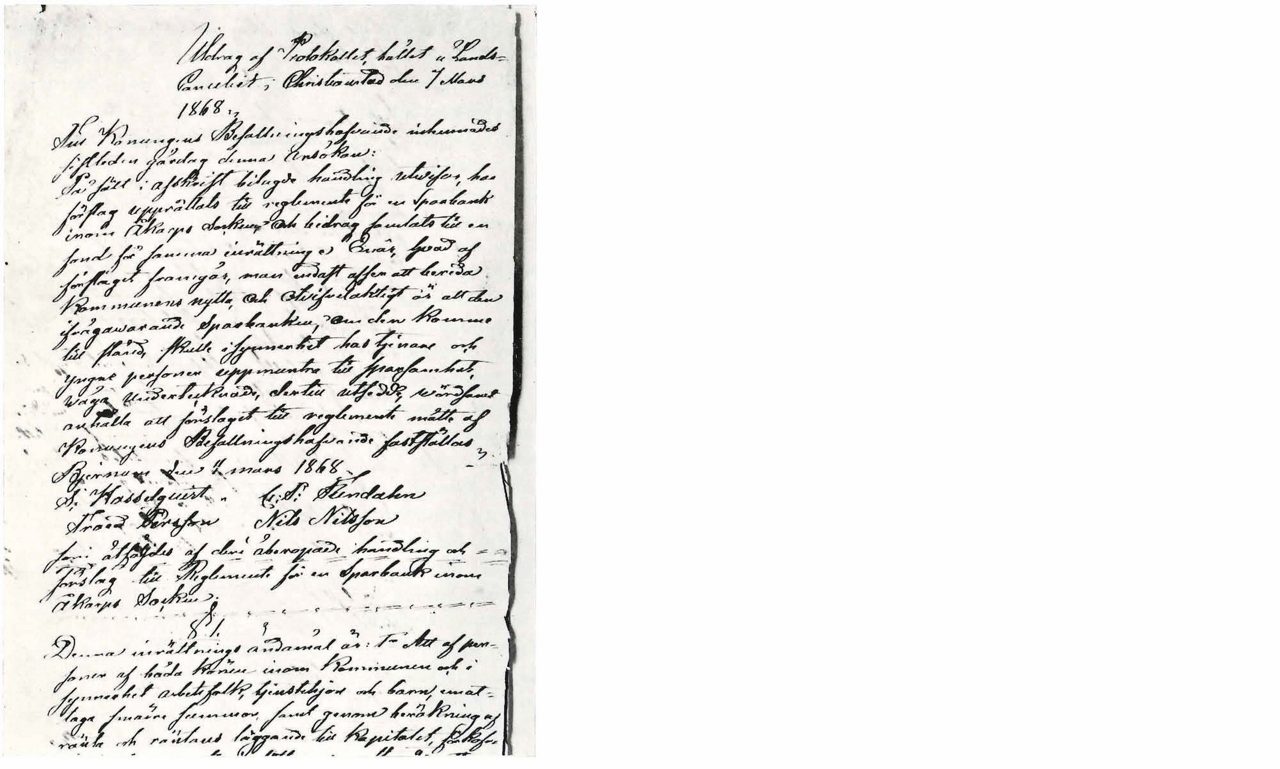 Utdrag af Protokollet, hållet å Lands-
Canceliet i Christianstad den 7 Mars
1868.
Till Konungens Befallningshafvande inlemnades
sistleden gårdag denna ansökan:
På sätt i afskrift bilagde handling utvisar, har
förslag upprättats till reglemente för en Sparbank
inom Åkarps Socken, och bidrag samlats till en
fond för samma inrättning. Enär, hvad af
förslaget framgår, man endast afser att bereda
Kommunens nytta, och otvifvelaktigt är att den
ifrågavarande Sparbanken, om den komme
till stånd, skulle i synnerhet hos tjenare och
yngre personer uppmuntra till sparsamhet,
våga Undertecknade, dertill utsedde, wördsamt
anhålla att förslaget till reglemente måtte af
Konungens Befallningshafvande fastställas
Bjernum den 7 mars 1868
S. Hasselquist C. P. Tendahn
Troed Persson Nils Nilsson
som åtföljdes af deri åberopade handling och
förslag till Reglemente för en Sparbank inom
Åkarps Socken:
§ 1.
Denna inrättnings ändamål är: 1o Att af per-
soner af båda könen inom Kommunen och i
synnerhet arbetsfolk, tjenstehjon och barn, emot-
taga smärre summor, samt genom beräkning af
ränta och räntans läggande till Kapitalet,